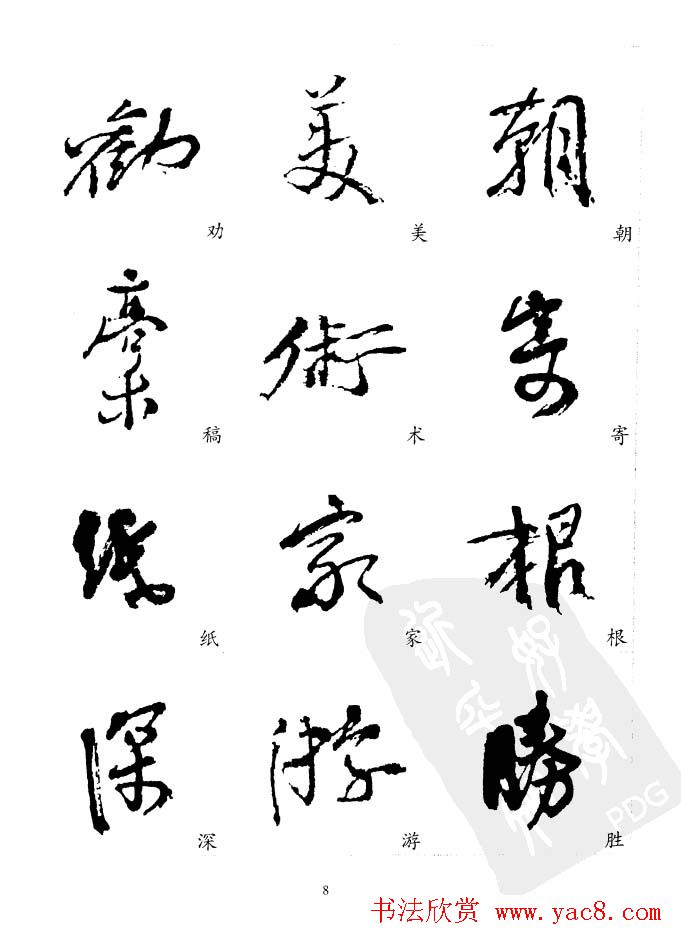 勸 美 朝
劝 美 朝
稾 術 寄
稿 术 寄
紙 家 根
纸 家 根
深 游 勝
深 游 胜
PDG
8
书法欣赏 www.yac8.com